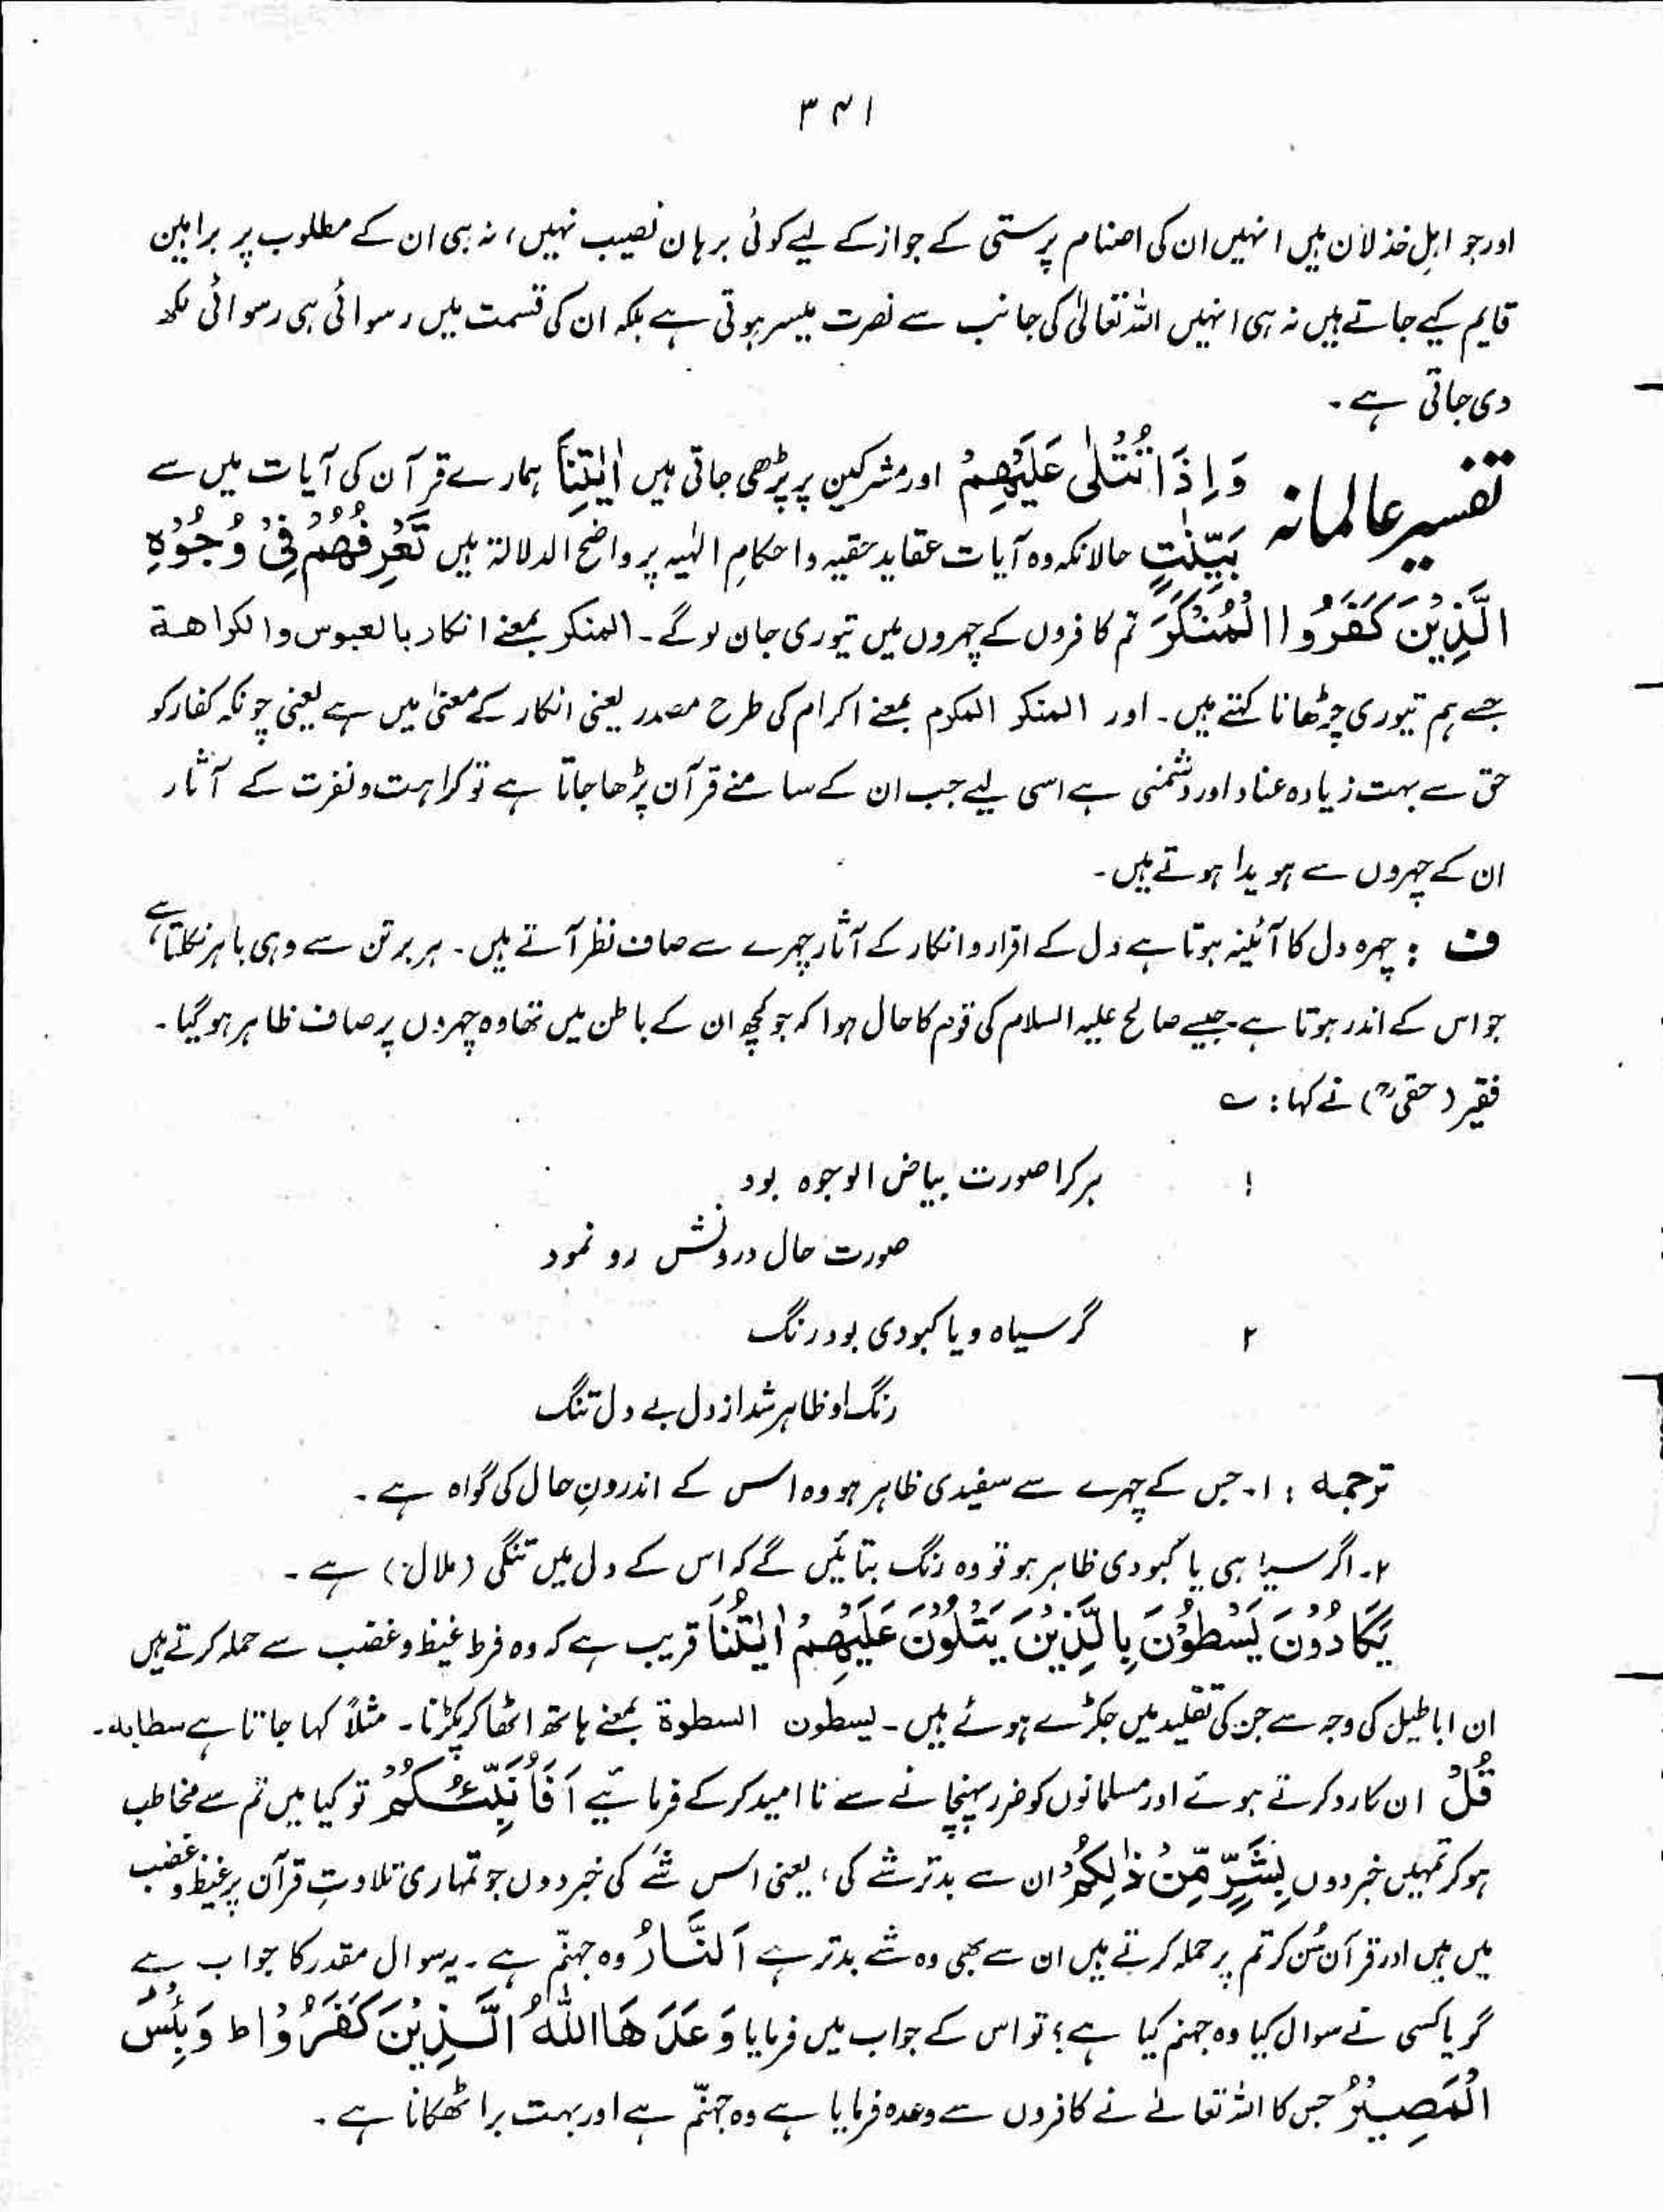 ۳۴۱
اور جو اہلِ خذلان ہیں انہیں ان کی اصنام پرستی کے جواز کے لیے کوئی برہان نصیب نہیں، نہ ہی ان کے مطلوب پر براہین
قایم کیے جاتے ہیں نہ ہی انہیں اللہ تعالیٰ کی جانب سے نصرت میسر ہوتی ہے بلکہ ان کی قسمت میں رسوائی ہی رسوائی لکھ
دی جاتی ہے۔
تفسیر عالمانہ وَاِذَا تُتْلٰی عَلَیْہِمْ اور مشرکین پر پڑھی جاتی ہیں اٰیٰتُنَا ہمارے قرآن کی آیات میں سے
بَیِّنٰتٍ حالانکہ وہ آیات عقاید حقیہ و احکامِ الٰہیہ پر واضح الدلالۃ ہیں تَعْرِفُھُمْ فِیْ وُجُوْہِ
الَّذِیْنَ کَفَرُوا الْمُنْکَرَ تم کافروں کے چہروں میں تیوری جان لو گے۔ المنکر بمعنے انکار بالعبوس والکراھۃ
جسے ہم تیوری چڑھانا کہتے ہیں۔ اور المنکر المکرم بمعنے اکرام کی طرح مصدر یعنی انکار کے معنیٰ میں ہے یعنی چونکہ کفار کو
حق سے بہت زیادہ عناد اور دشمنی ہے اسی لیے جب ان کے سامنے قرآن پڑھا جاتا ہے تو کراہت و نفرت کے آثار
ان کے چہروں سے ہویدا ہوتے ہیں۔
ف : چہرہ دل کا آئینہ ہوتا ہے دل کے اقرار و انکار کے آثار چہرے سے صاف نظر آتے ہیں۔ ہر برتن سے وہی باہر نکلتا ہے،
جو اس کے اندر ہوتا ہے۔ جیسے صالح علیہ السلام کی قوم کا حال ہوا کہ جو کچھ ان کے باطن میں تھا وہ چہروں پر صاف ظاہر ہو گیا۔
فقیر (حقیؒ) نے کہا : ؎
۱ ہر کرا صورت بیاض الوجوہ بود
صورت حال درونش رو نمود
۲ گر سیاہ و یا کبودی بود رنگ
رنگ او ظاہر شد از دل بے دل تنگ
ترجمہ : ۱۔ جس کے چہرے سے سفیدی ظاہر ہو وہ اس کے اندرونِ حال کی گواہ ہے۔
۲۔ اگر سیاہی یا کبودی ظاہر ہو تو وہ رنگ بتائیں گے کہ اس کے دل میں تنگی (ملال) ہے۔
یَکَادُوْنَ یَسْطُوْنَ بِالَّذِیْنَ یَتْلُوْنَ عَلَیْھِمْ اٰیٰتُنَا قریب ہے کہ وہ فرط غیظ و غضب سے حملہ کرتے ہیں
ان اباطیل کی وجہ سے جن کی تقلید میں جکڑے ہوئے ہیں۔ یسطون السطوۃ بمعنے ہاتھ اٹھا کر پکڑنا۔ مثلاً کہا جاتا ہے سطابہ۔
قُلْ ان کا رد کرتے ہوئے اور مسلمانوں کو ضرر پہنچانے سے ناامید کر کے فرمائیے اَفَاُنَبِّئُکُمْ تو کیا میں تم سے مخاطب
ہو کر تمہیں خبر دوں بِشَرٍّ مِّنْ ذٰلِکُمْ ان سے بدتر شے کی، یعنی اس شے کی خبر دوں جو تمہاری تلاوتِ قرآن پر غیظ و غضب
میں ہیں اور قرآن سُن کر تم پر حملہ کرتے ہیں ان سے بھی وہ شے بدتر ہے اَلنَّارُ وہ جہنّم ہے۔ یہ سوال مقدر کا جواب ہے
گویا کسی نے سوال کیا وہ جہنم کیا ہے؟ تو اس کے جواب میں فرمایا وَعَدَ ھَا اللہُ الَّذِیْنَ کَفَرُوْا ط وَبِئْسَ
الْمَصِیْرُ جس کا اللہ تعالےٰ نے کافروں سے وعدہ فرمایا ہے وہ جہنّم ہے اور بہت برا ٹھکانا ہے۔